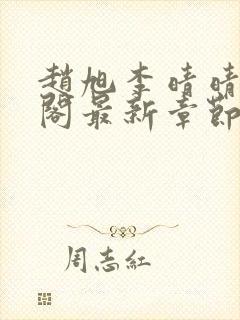 趙旭李晴晴
閣最新章節
周志紅